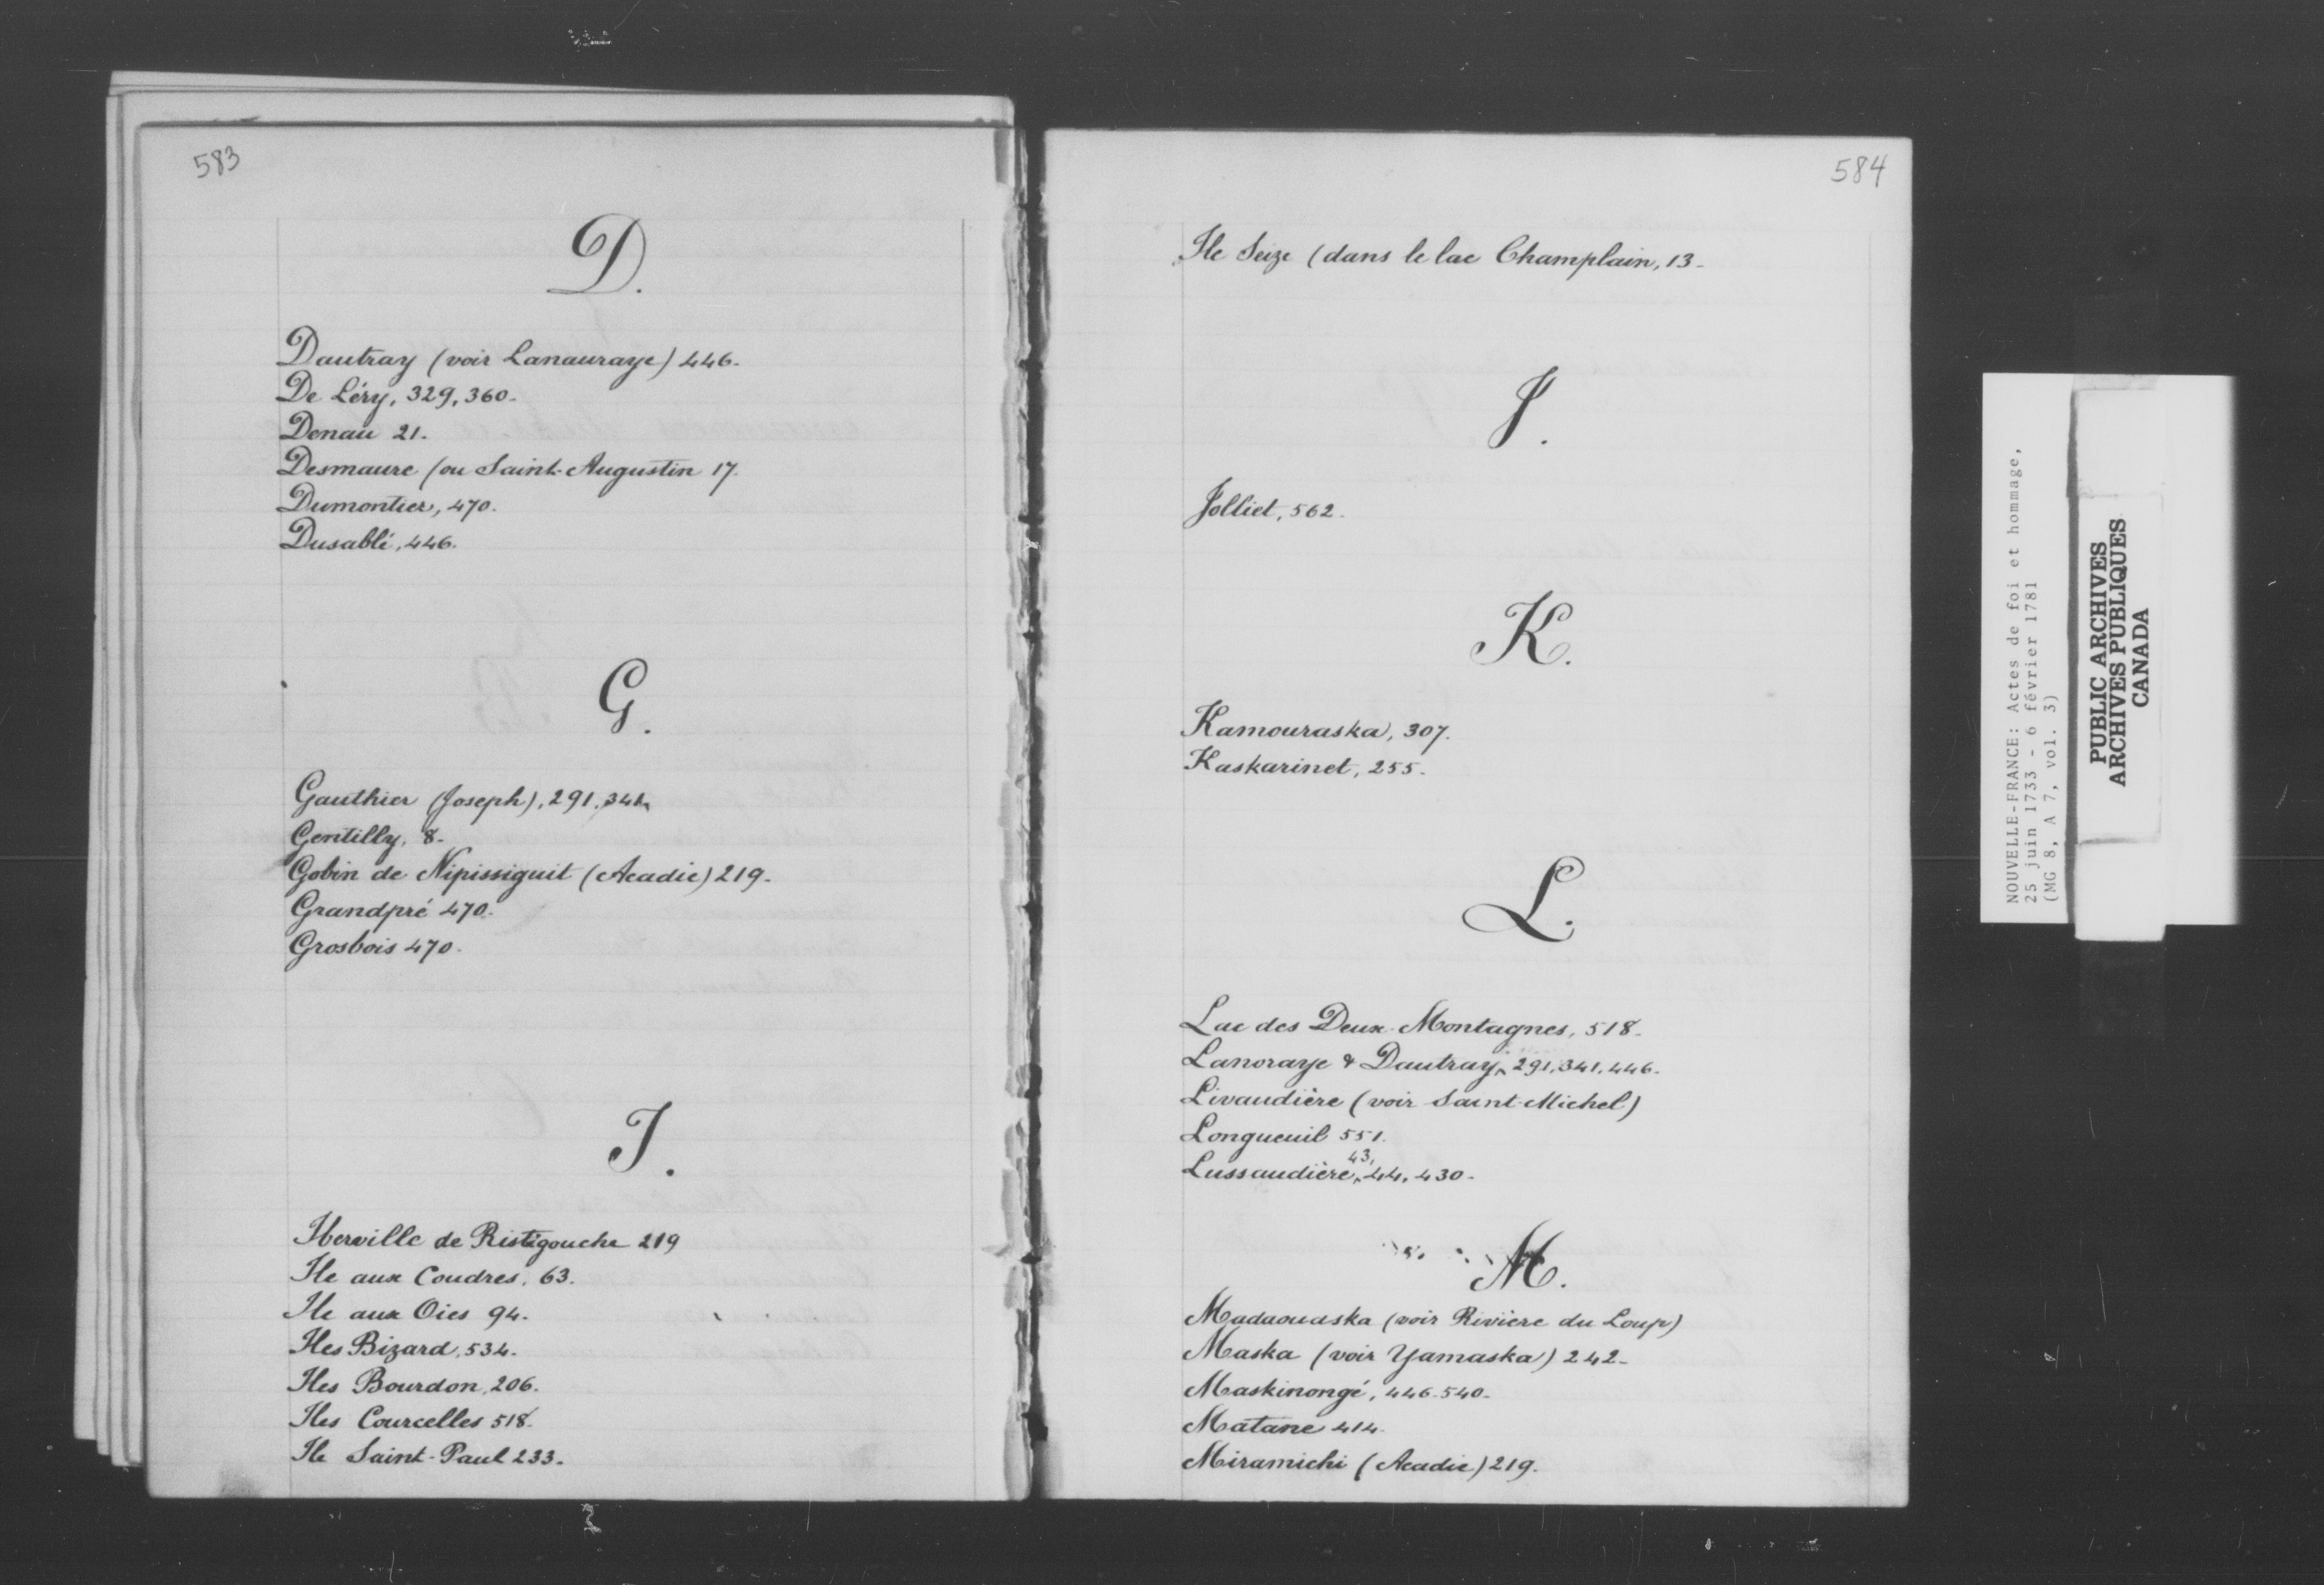 583
D.
Dautray (voir Lanauraye) 446.
De Léry, 329, 360.
Denau 21.
Desmaure (ou Saint-Augustin 17.
Dumontier, 470.
Dusablé, 446.
G.
Gauthier (Joseph), 291, 341
Gentilly, 8.
Gobin de Nipissiguit (Acadie) 219.
Grandpré 470.
Grosbois 470.
I.
Iberville de Ristigouche 219
Ile aux Coudres, 63.
Ile aux Oies 94.
Iles Bizard, 534.
Iles Bourdon, 206.
Iles Courcelles 518.
Ile Saint-Paul 233.
584
Ile Seize (dans le lac Champlain, 13.
J.
Jolliet, 562.
K.
Kamouraska, 307.
Kaskarinet, 255.
L.
Lac des Deux-Montagnes, 518.
Lanoraye & Dautray, 291, 341, 446.
Livaudière (voir Saint-Michel)
Longueuil 551.
Lussaudière, 43, 44, 430.
M.
Madaouaska (voir Rivière du Loup)
Maska (voir Yamaska) 242.
Maskinongé, 446-540.
Matane 414.
Miramichi (Acadie) 219.
NOUVELLE-FRANCE: Actes de foi et hommage,
25 juin 1733 - 6 février 1781
(MG 8, A 7, vol. 3)
PUBLIC ARCHIVES
ARCHIVES PUBLIQUES
CANADA